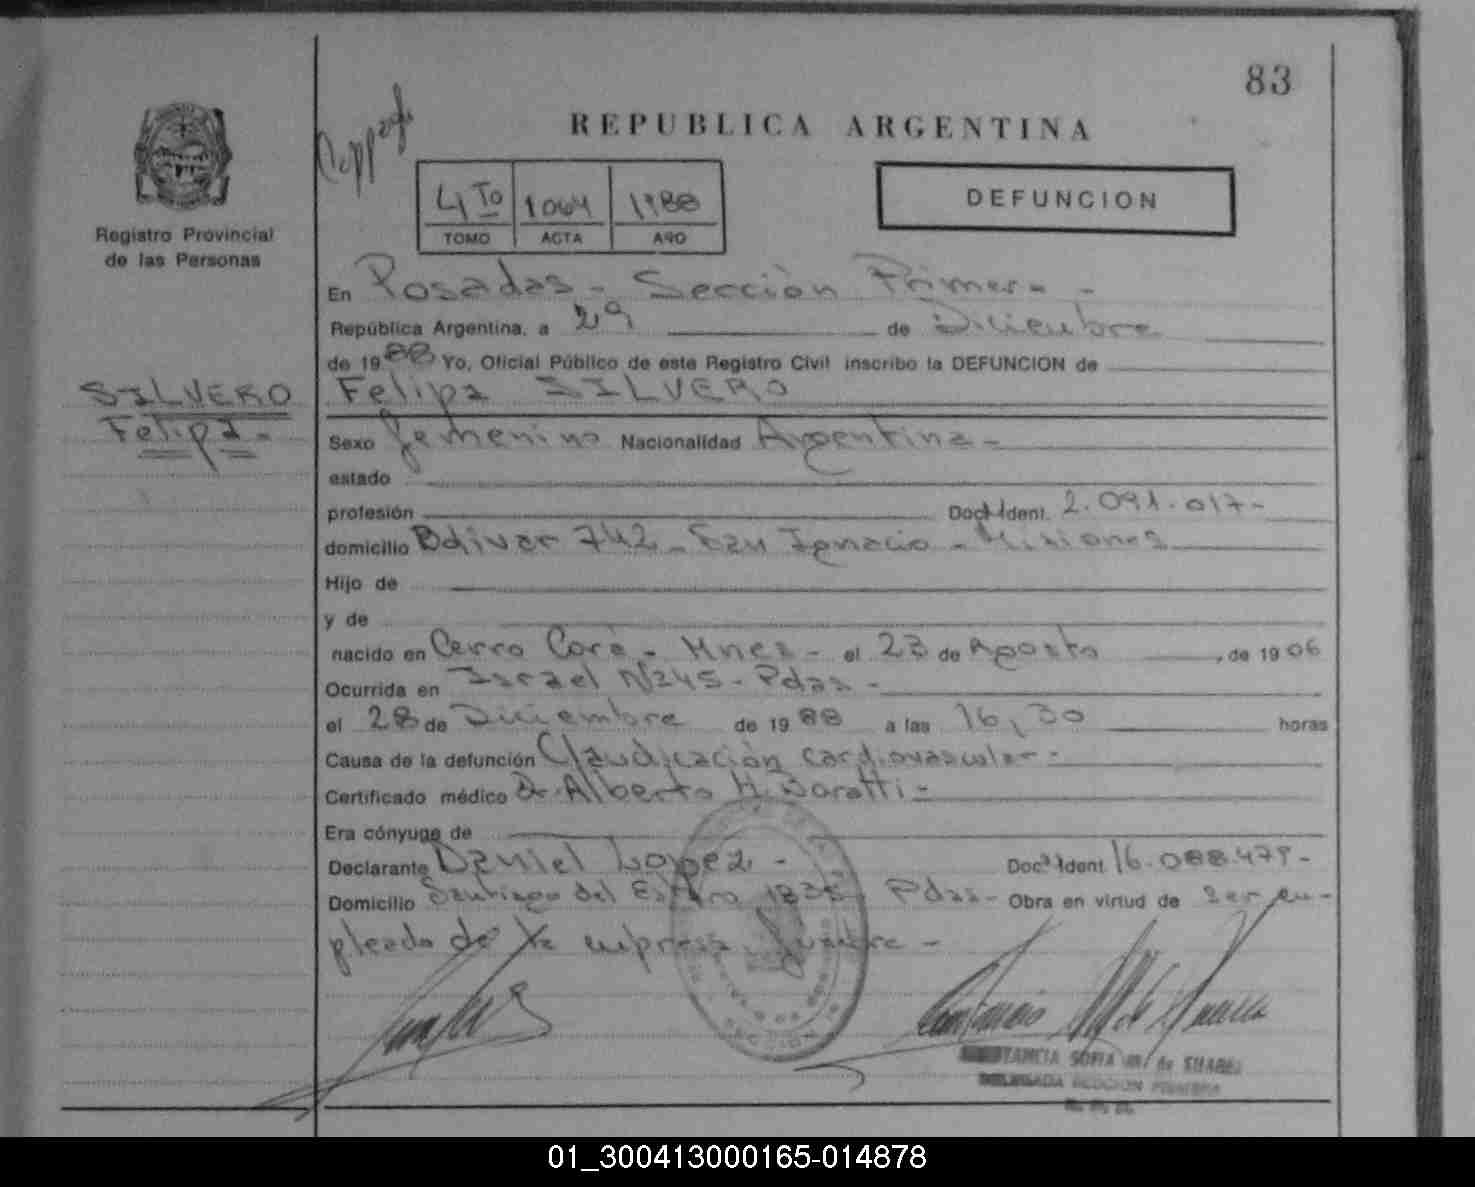 83
REPUBLICA ARGENTINA
DEFUNCION
4 TO 1064 1988
TOMO ACTA AÑO
Registro Provincial
de las Personas
En Posadas - Sección Primera -
República Argentina, a 29 de Diciembre
de 1988 Yo, Oficial Público de este Registro Civil inscribo la DEFUNCION de
SILVERO
Felipa -
Felipa SILVERO
Sexo femenino Nacionalidad Argentina -
estado
profesión Doc. Ident. 2.091.017 -
domicilio Bolivar 742 - San Ignacio - Misiones
Hijo de
y de
nacido en Cerro Corá - Mnes - el 23 de Agosto, de 1906
Ocurrida en Israel N 245 - Pdas -
el 28 de Diciembre de 1988 a las 16,30 horas
Causa de la defunción Claudicación cardiovascular -
Certificado médico Dr. Alberto H. Boratti -
Era cónyuge de
Declarante Daniel Lopez - Doc. Ident. 16.088.479 -
Domicilio Santiago del Estero Pdas - Obra en virtud de ser em-
pleado de la empresa funebre -
SOFIA de SUAREZ
DELEGADA SECCION PRIMERA
01_300413000165-014878